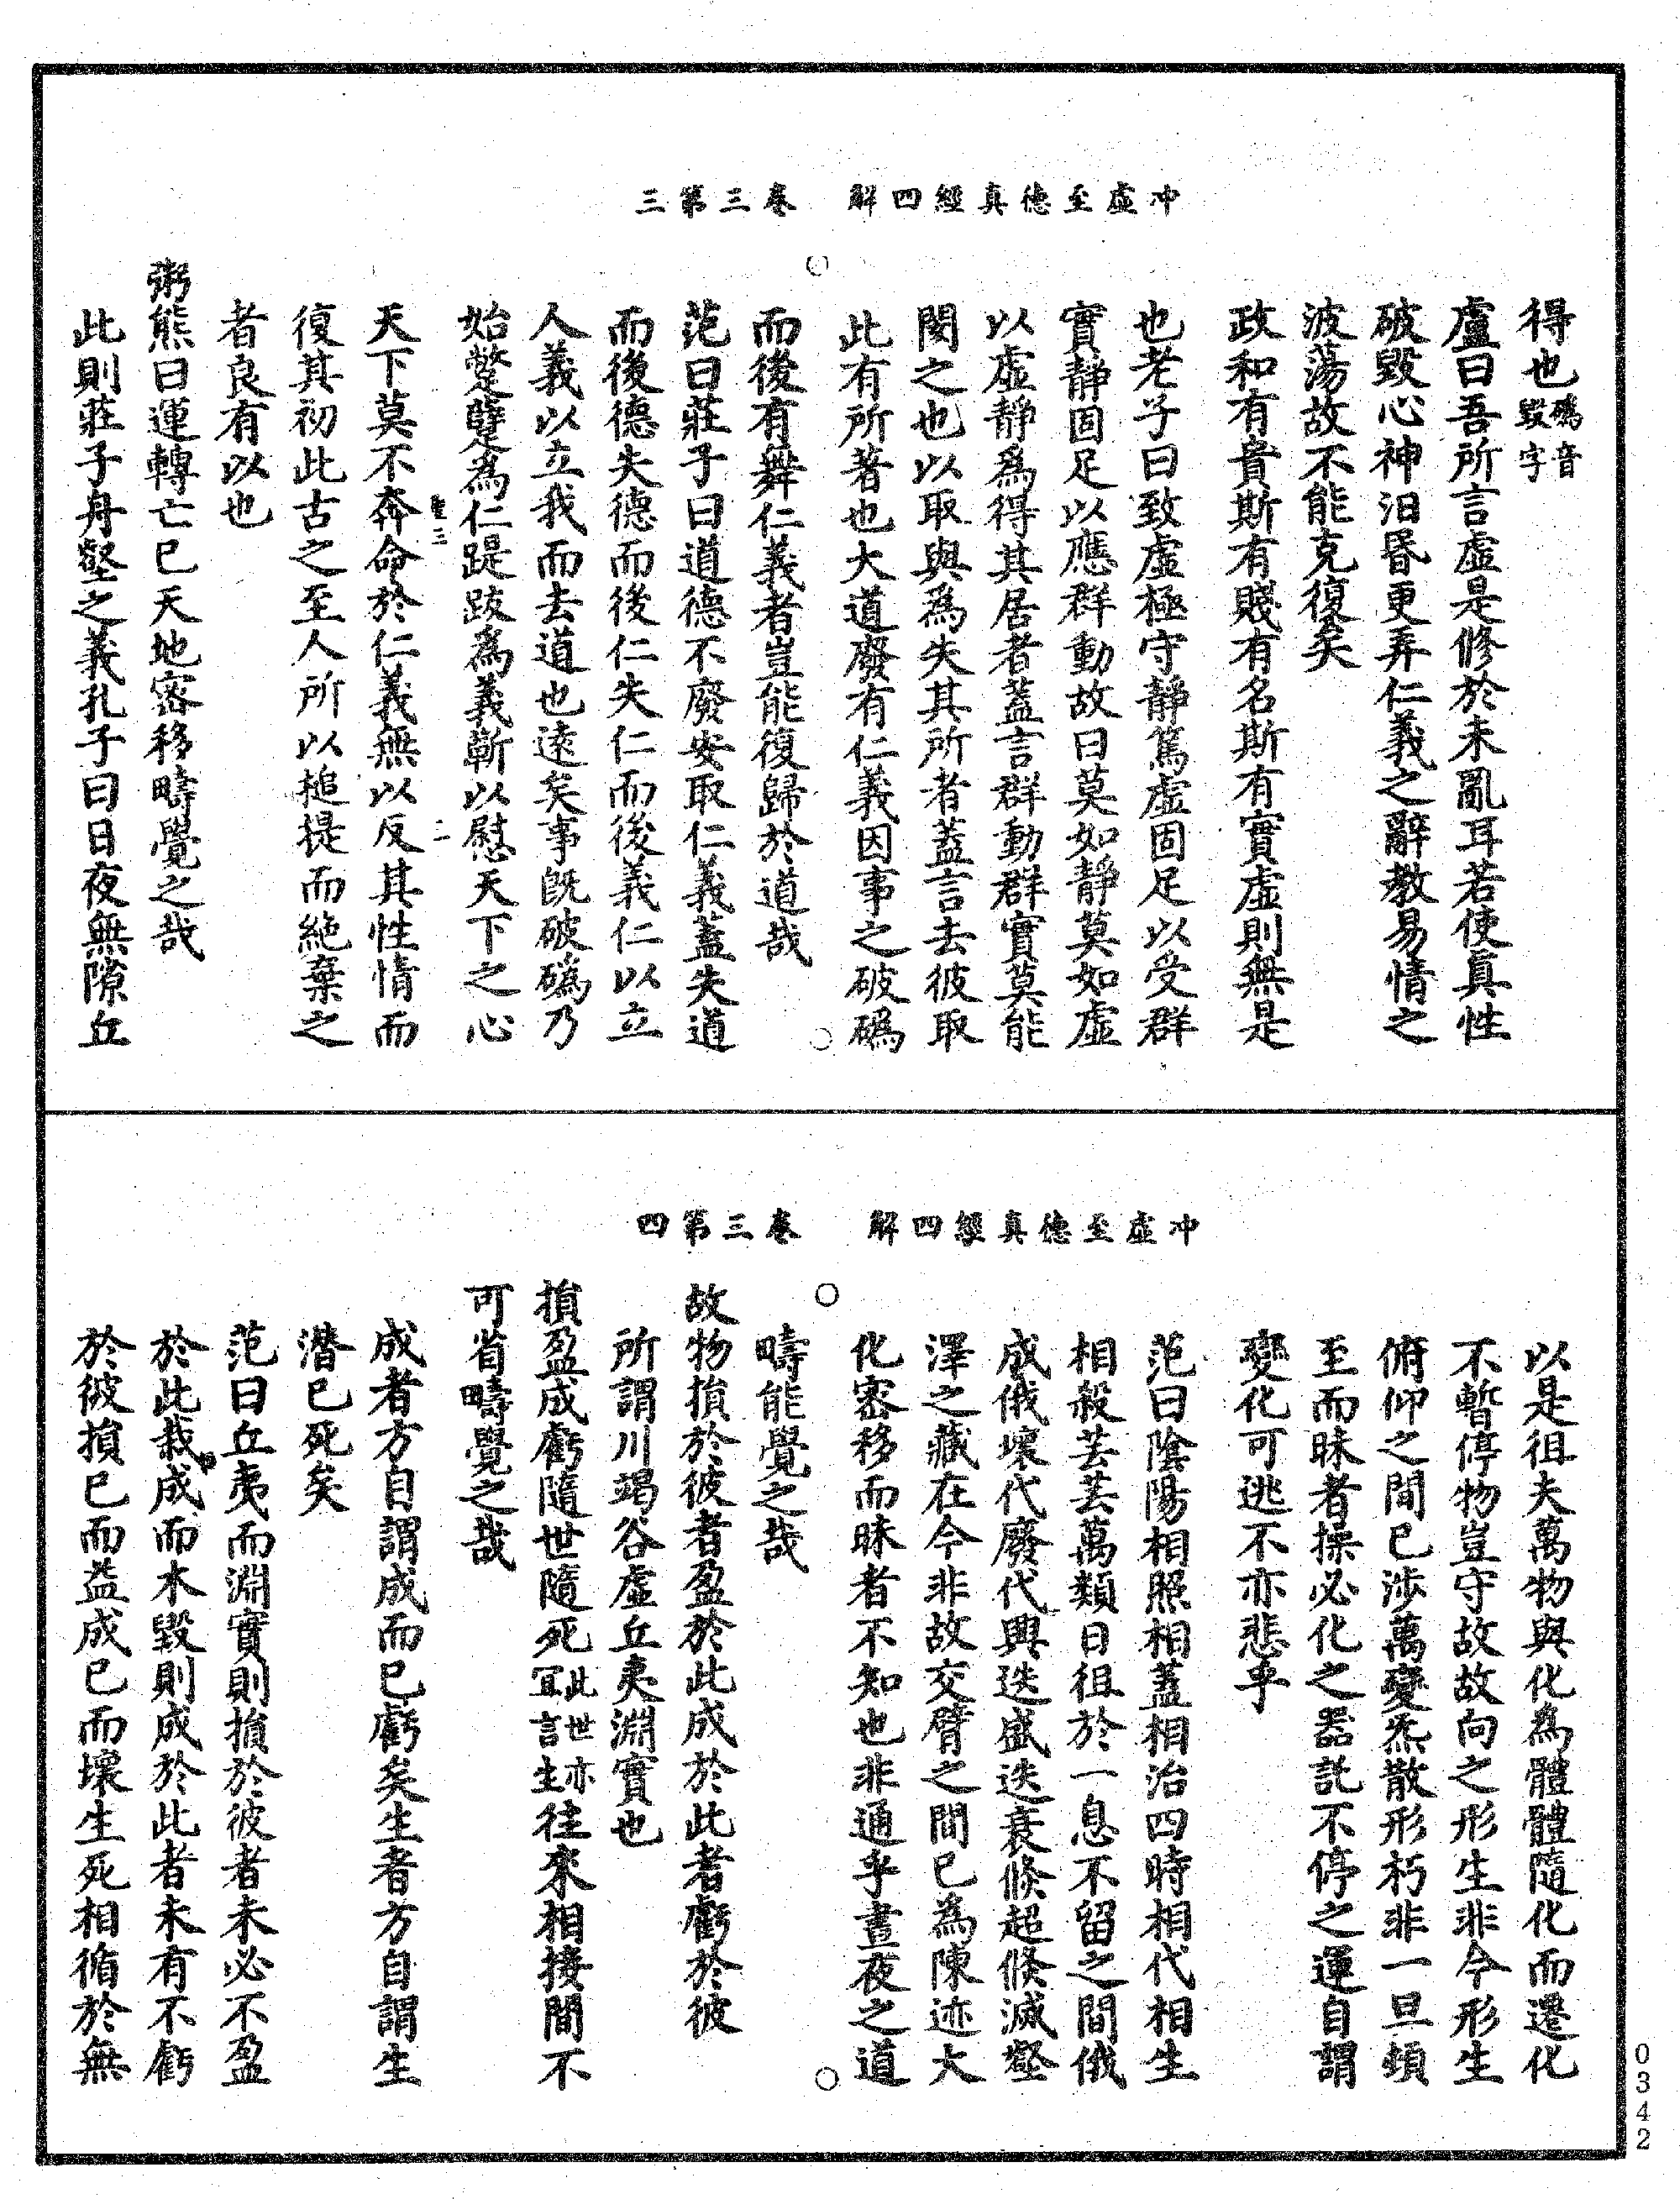 冲虛至德真經四解　卷三第三
得也䃣音毀字
盧曰吾所言虛是修於未亂耳若使真性
破毀心神汨昬更弄仁義之辭教易情之
波蕩故不能克復矣
政和有貴斯有賤有名斯有實虛則無是
也老子曰致虛極守靜篤虛固足以受群
實靜固足以應群動故曰莫如靜莫如虛
以虛靜爲得其居者蓋言群動群實莫能
閡之也以取與爲失其所者蓋言去彼取
此有所著也大道廢有仁義因事之破䃣
而後有舞仁義者豈能復歸於道哉
范曰莊子曰道德不廢安取仁義蓋失道
而後德失德而後仁失仁而後義仁以立
人義以立我而去道也遠矣事既破䃣乃
始蹩躠為仁踶跂為義蘄以慰天下之心
天下莫不奔命於仁義無以反其性情而
復其初此古之至人所以搥提而絶棄之
者良有以也
粥熊曰運轉亡已天地密移疇覺之哉
此則莊子舟壑之義孔子曰日夜無隙丘
聖三
二
冲虛至德真經四解　卷三第四
以是徂夫萬物與化為體體隨化而遷化
不暫停物豈守故故向之形生非今形生
俯仰之間已涉萬變炁散形朽非一旦頓
至而昧者操必化之器託不停之運自謂
變化可逃不亦悲乎
范曰陰陽相照相蓋相治四時相代相生
相殺芸芸萬類日徂於一息不留之間俄
成俄壞代廢代興迭盛迭衰倏起倏滅壑
澤之藏在今非故交臂之間已為陳迹大
化密移而昧者不知也非通乎晝夜之道
疇能覺之哉
故物損於彼者盈於此成於此者虧於彼
所謂川竭谷虛丘夷淵實也
損盈成虧隨世隨死此世亦宜言生往來相接間不
可省疇覺之哉
成者方自謂成而已虧矣生者方自謂生
潛已死矣
范曰丘夷而淵實則損於彼者未必不盈
於此栽成而木毀則成於此者未有不虧
於彼損已而益成已而壞生死相循於無
0342